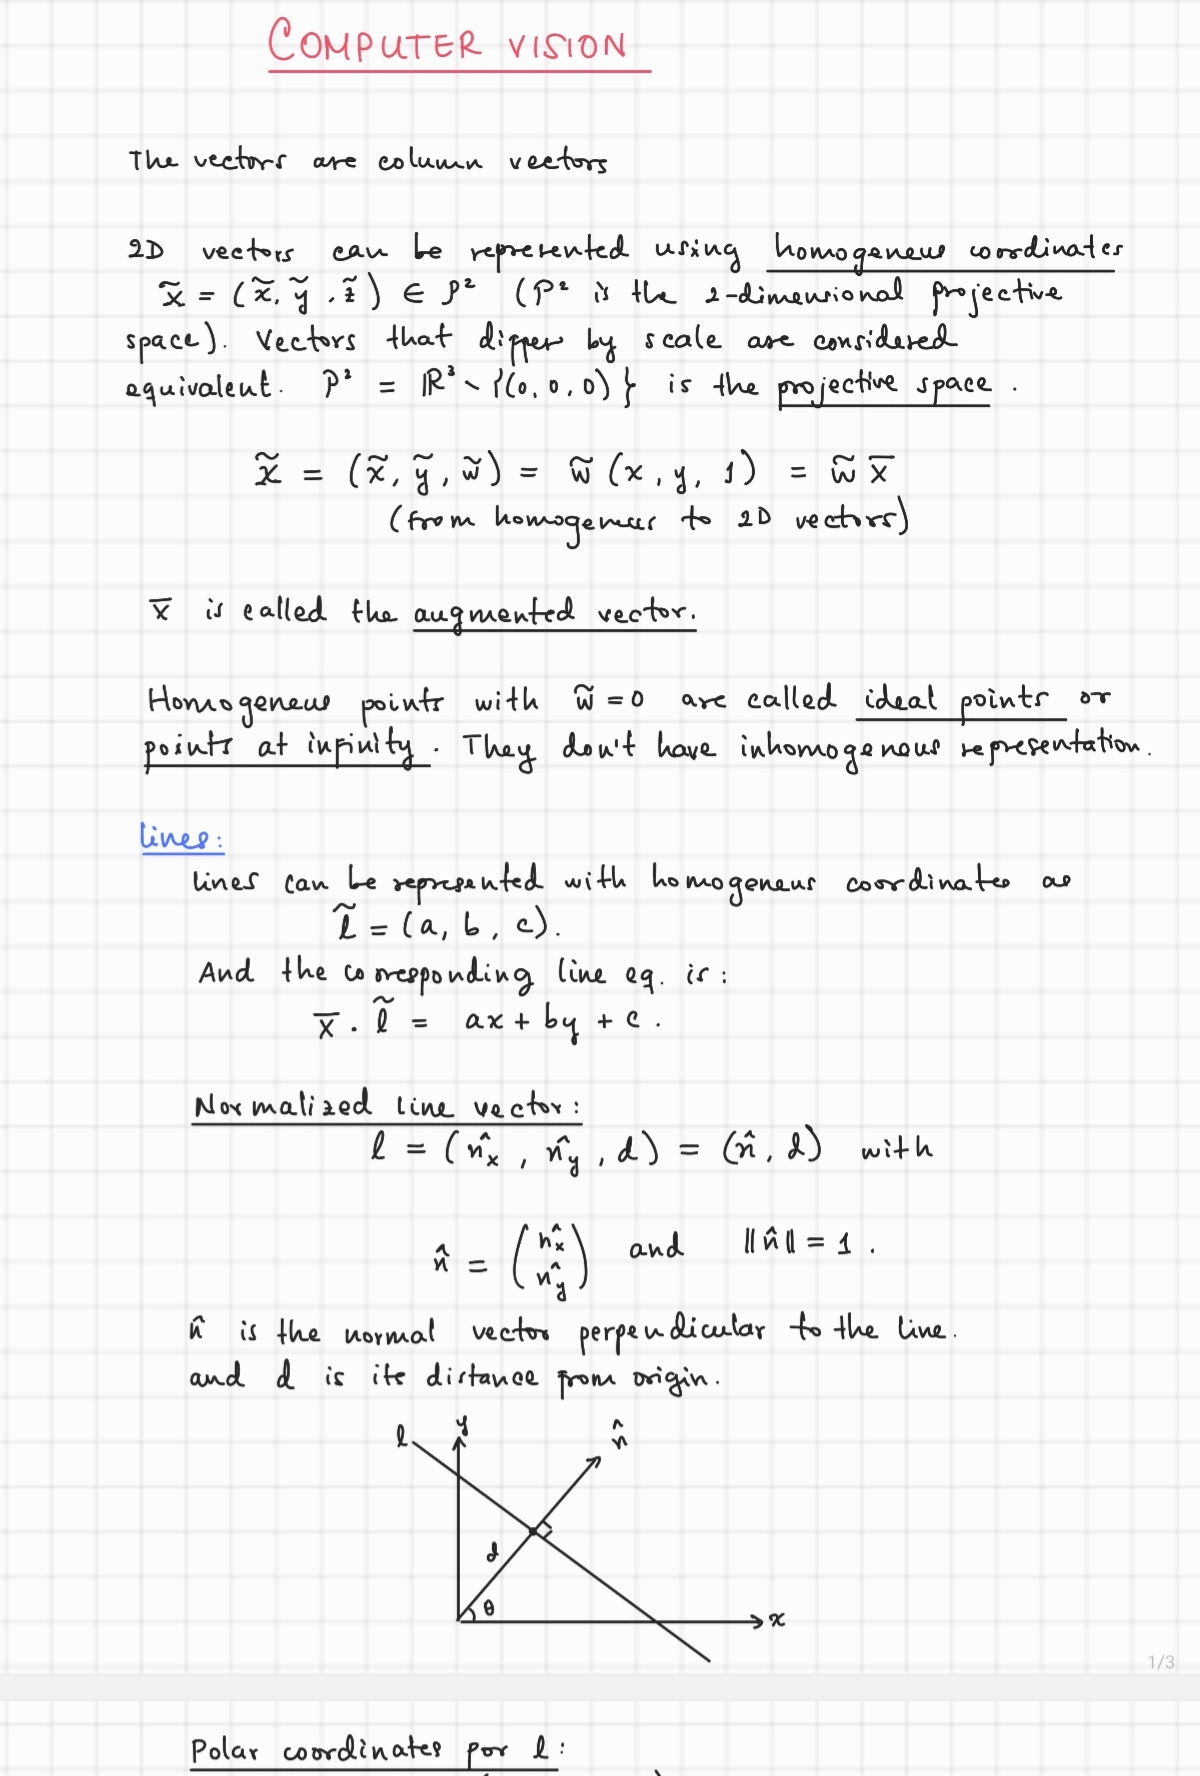 COMPUTER VISION
The vectors are column vectors
2D vectors can be represented using homogeneus coordinates
x̃ = (x̃, ỹ, z̃) ∈ P² (P² is the 2-dimensional projective
space). Vectors that differ by scale are considered
equivalent. P² = ℝ³ \ {(0,0,0)} is the projective space.
x̃ = (x̃, ỹ, w̃) = w̃ (x, y, 1) = w̃ x̅
(from homogeneus to 2D vectors)
x̅ is called the augmented vector.
Homogeneus points with w̃ = 0 are called ideal points or
points at infinity. They don't have inhomogenous representation.
lines:
lines can be represented with homogeneus coordinates as
l̃ = (a, b, c).
And the corresponding line eq. is:
x̅ · l̃ = ax + by + c.
Normalized line vector:
l = (n̂x, n̂y, d) = (n̂, d) with
n̂ = (n̂x
n̂y) and ‖n̂‖ = 1.
n̂ is the normal vector perpendicular to the line.
and d is its distance from origin.
l y n̂
d
θ
x
1/3
Polar coordinates for l: